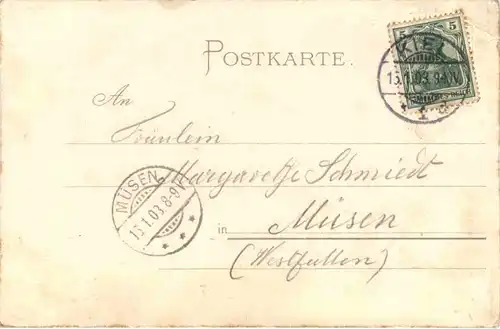 POSTKARTE.
5 5
KIEL
13.1.03. 9-10V.
An
Fräulein
Margarethe Schmiedt
MÜSEN
13.1.03. 8-9N
in Müsen
(Westfalen)